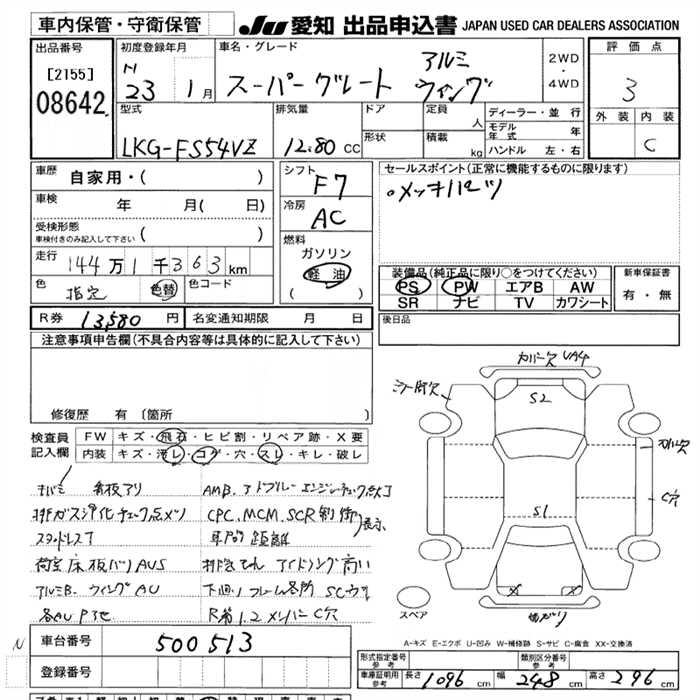 車内保管・守衛保管
JU 愛知 出品申込書 JAPAN USED CAR DEALERS ASSOCIATION
出品番号
[2155]
08642
初度登録年月
N
23 1月
車名・グレード
スーパーグレート アルミウィング
2WD
・
4WD
評価点
3
外装 内装
C
型式
LKG-FS54VZ
排気量
12.80 CC
ドア
形状
定員
人
積載
kg
ディーラー・並行
モデル年式 年
ハンドル 左・右
車歴
自家用・( )
車検
年 月( 日)
受検形態
車検付きのみ記入して下さい ( )
走行
144万1千363km
色
指定 色替
色コード
シフト
F7
冷房
AC
燃料
ガソリン
軽油
( )
セールスポイント(正常に機能するものに限ります)
。メッキパーツ
装備品(純正品に限り○をつけてください)
PS PW エアB AW
SR ナビ TV カワシート
新車保証書
有・無
R券 13,580 円
名変通知期限 月 日
後日品
注意事項申告欄(不具合内容等は具体的に記入して下さい)
修復歴 有 〔箇所
検査員記入欄
FW キズ・飛石・ヒビ割・リペア跡・X要
内装 キズ・汚レ・コゲ・穴・スレ・キレ・破レ
看板アリ
AMB. アドブルー エンジンチェック点灯
排ガス浄化チェック点メツ
CPC, MCM, SCR制御
表示
スタッドレスT
車間距離
荷室床板バリAUS
アイドリング高い
アルミB. ウィングAU
下回リフレーム各所SCサビ
各AU P3セ
R第1.2メンバーC穴
カバー欠 UA4
ミラー部欠
S2
S1
C穴
スペア
A-キズ E-エクボ U-凹み W-補修跡 S-サビ C-腐食 XX-交換済
N
車台番号 500513
登録番号
形式指定番号
参考
類別区分番号
参考
車庫証明用
参考
長さ 1096 cm 幅 248 cm 高さ 296 cm